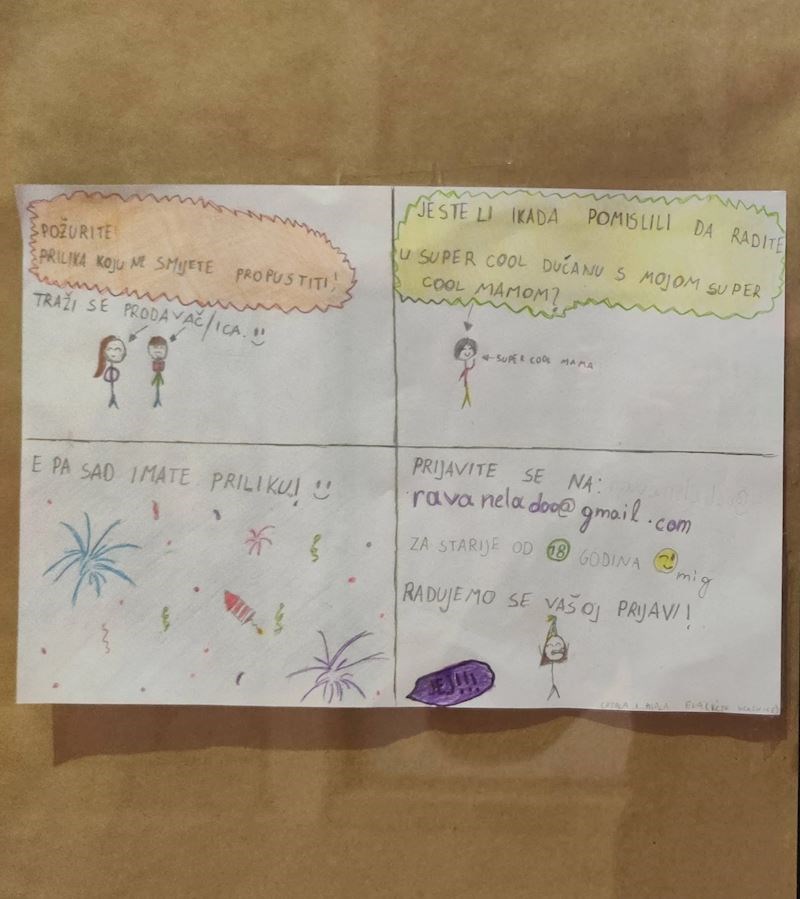 POŽURITE!
PRILIKA KOJU NE SMIJETE PROPUSTITI!
TRAŽI SE PRODAVAČ/ICA. :)
JESTE LI IKADA POMISLILI DA RADITE
U SUPER COOL DUĆANU S MOJOM SUPER
COOL MAMOM?
SUPER COOL MAMA
E PA SAD IMATE PRILIKU! :)
PRIJAVITE SE NA:
ravaneladoo@gmail.com
ZA STARIJE OD 18 GODINA
mig
RADUJEMO SE VAŠOJ PRIJAVI!
JEJ!!!